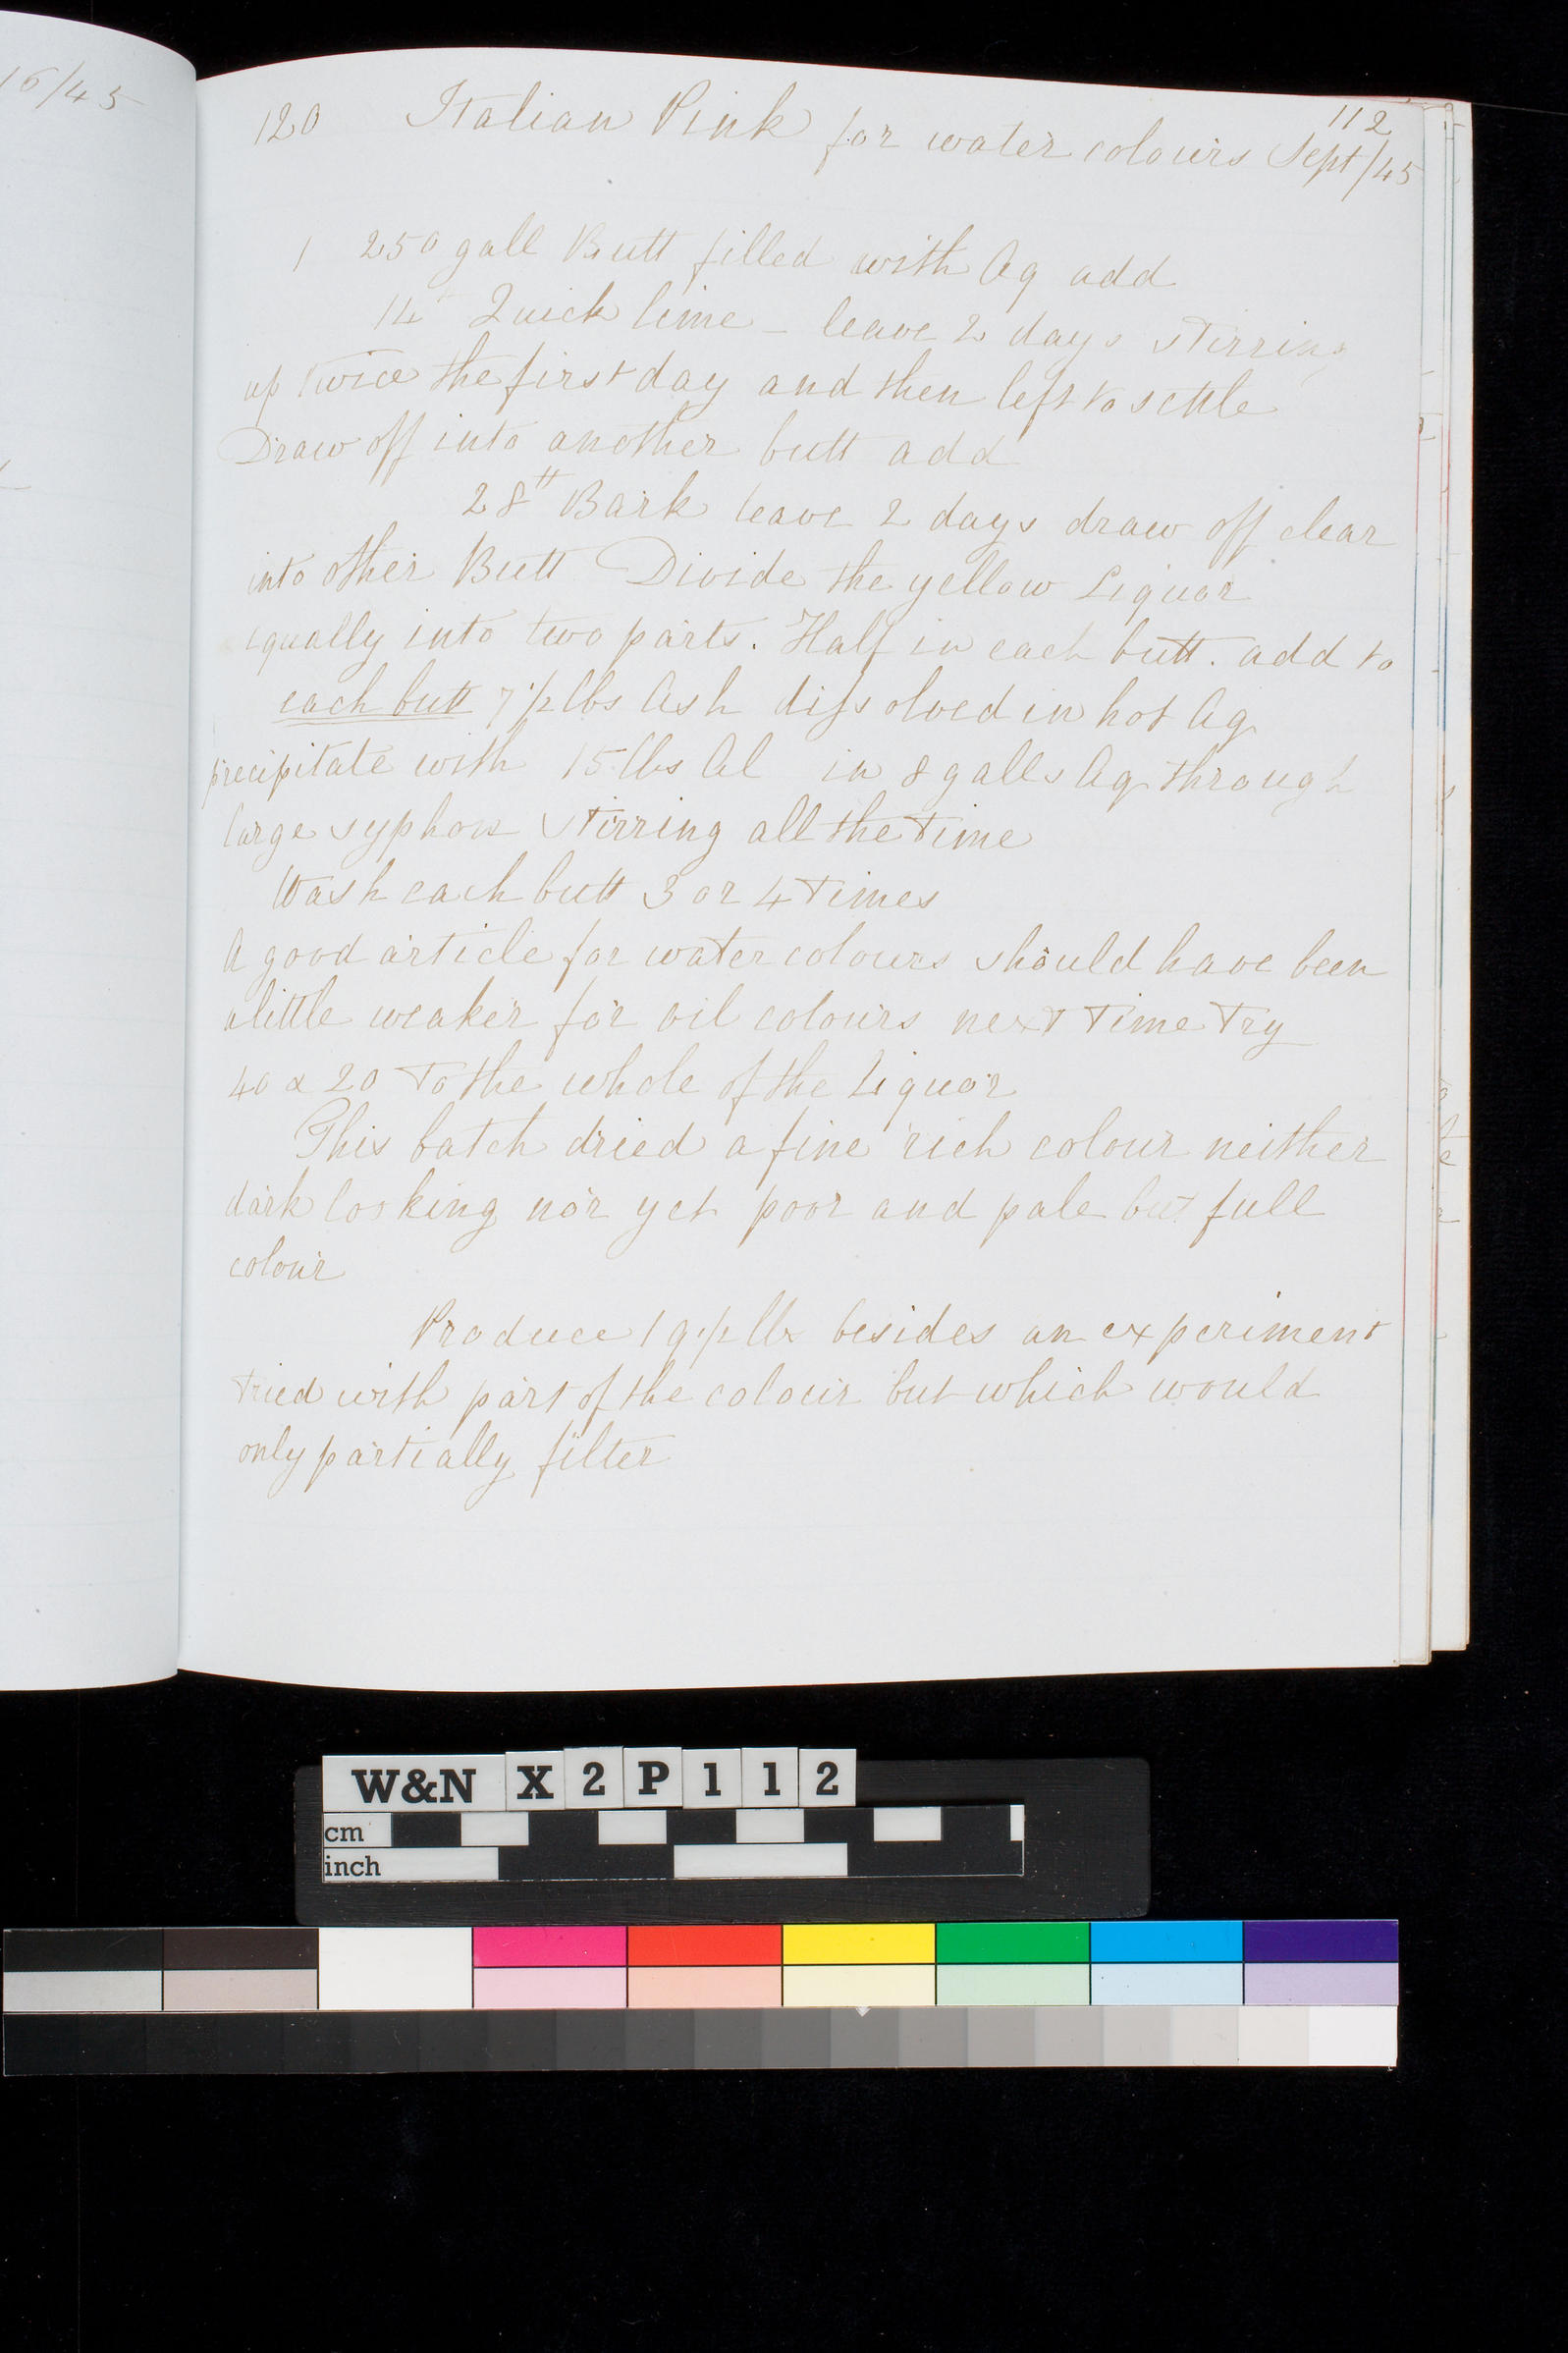 16/45
112
120 Italian Pink for water colours Sept/45
1 250 gall Butt filled with Aq add
14 Quick lime - leave 2 days stirring
up twice the first day and then left to settle
Draw off into another butt add
28 tt Bark leave 2 days draw off clear
into other Butt Divide the yellow Liquor
equally into two parts. Half in each butt. add to
each butt 7 1/2 lbs Ash difsolved in hot Aq
precipitate with 15 lbs Al in 8 galls Aq through
large syphon stirring all the time
Wash each butt 3 or 4 times
A good article for water colours should have been
a little weaker for oil colours next time try
40 & 20 to the whole of the Liquor
This batch dried a fine rich colour neither
dark looking nor yet poor and pale but full
colour
Produce 19 1/2 lbs besides an experiment
tried with part of the colour but which would
only partially filter
W&N X 2 P 1 1 2
cm
inch